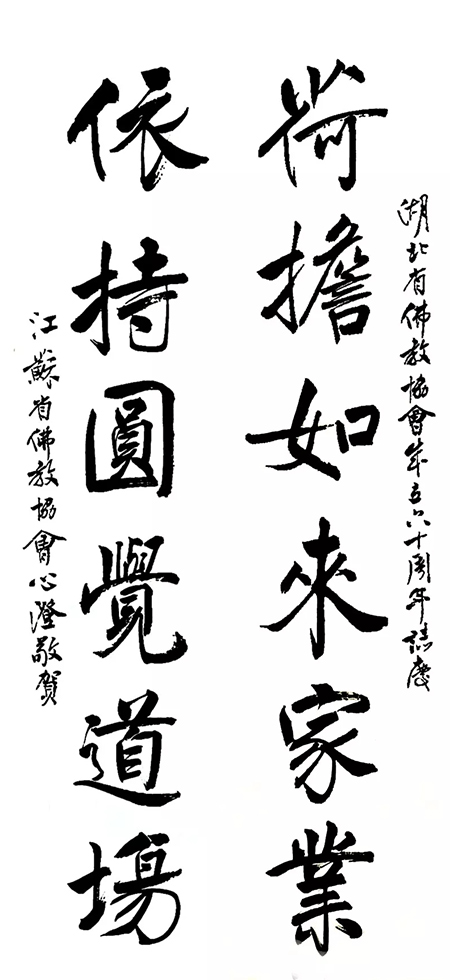 湖北省佛教協會成立六十周年誌慶
荷擔如來家業
依持圓覺道場
江蘇省佛教協會心澄敬賀